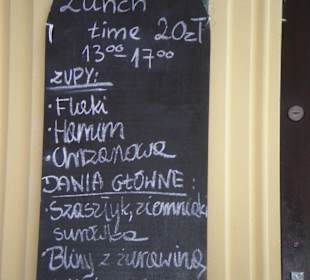 Lunch
time 20zł
13⁰⁰-17⁰⁰
ZUPY:
· Flaki
· Harum
DANIA GŁÓWNE:
· Szaszłyk, ziemniaki
surówka
· Bliny z żurawiną